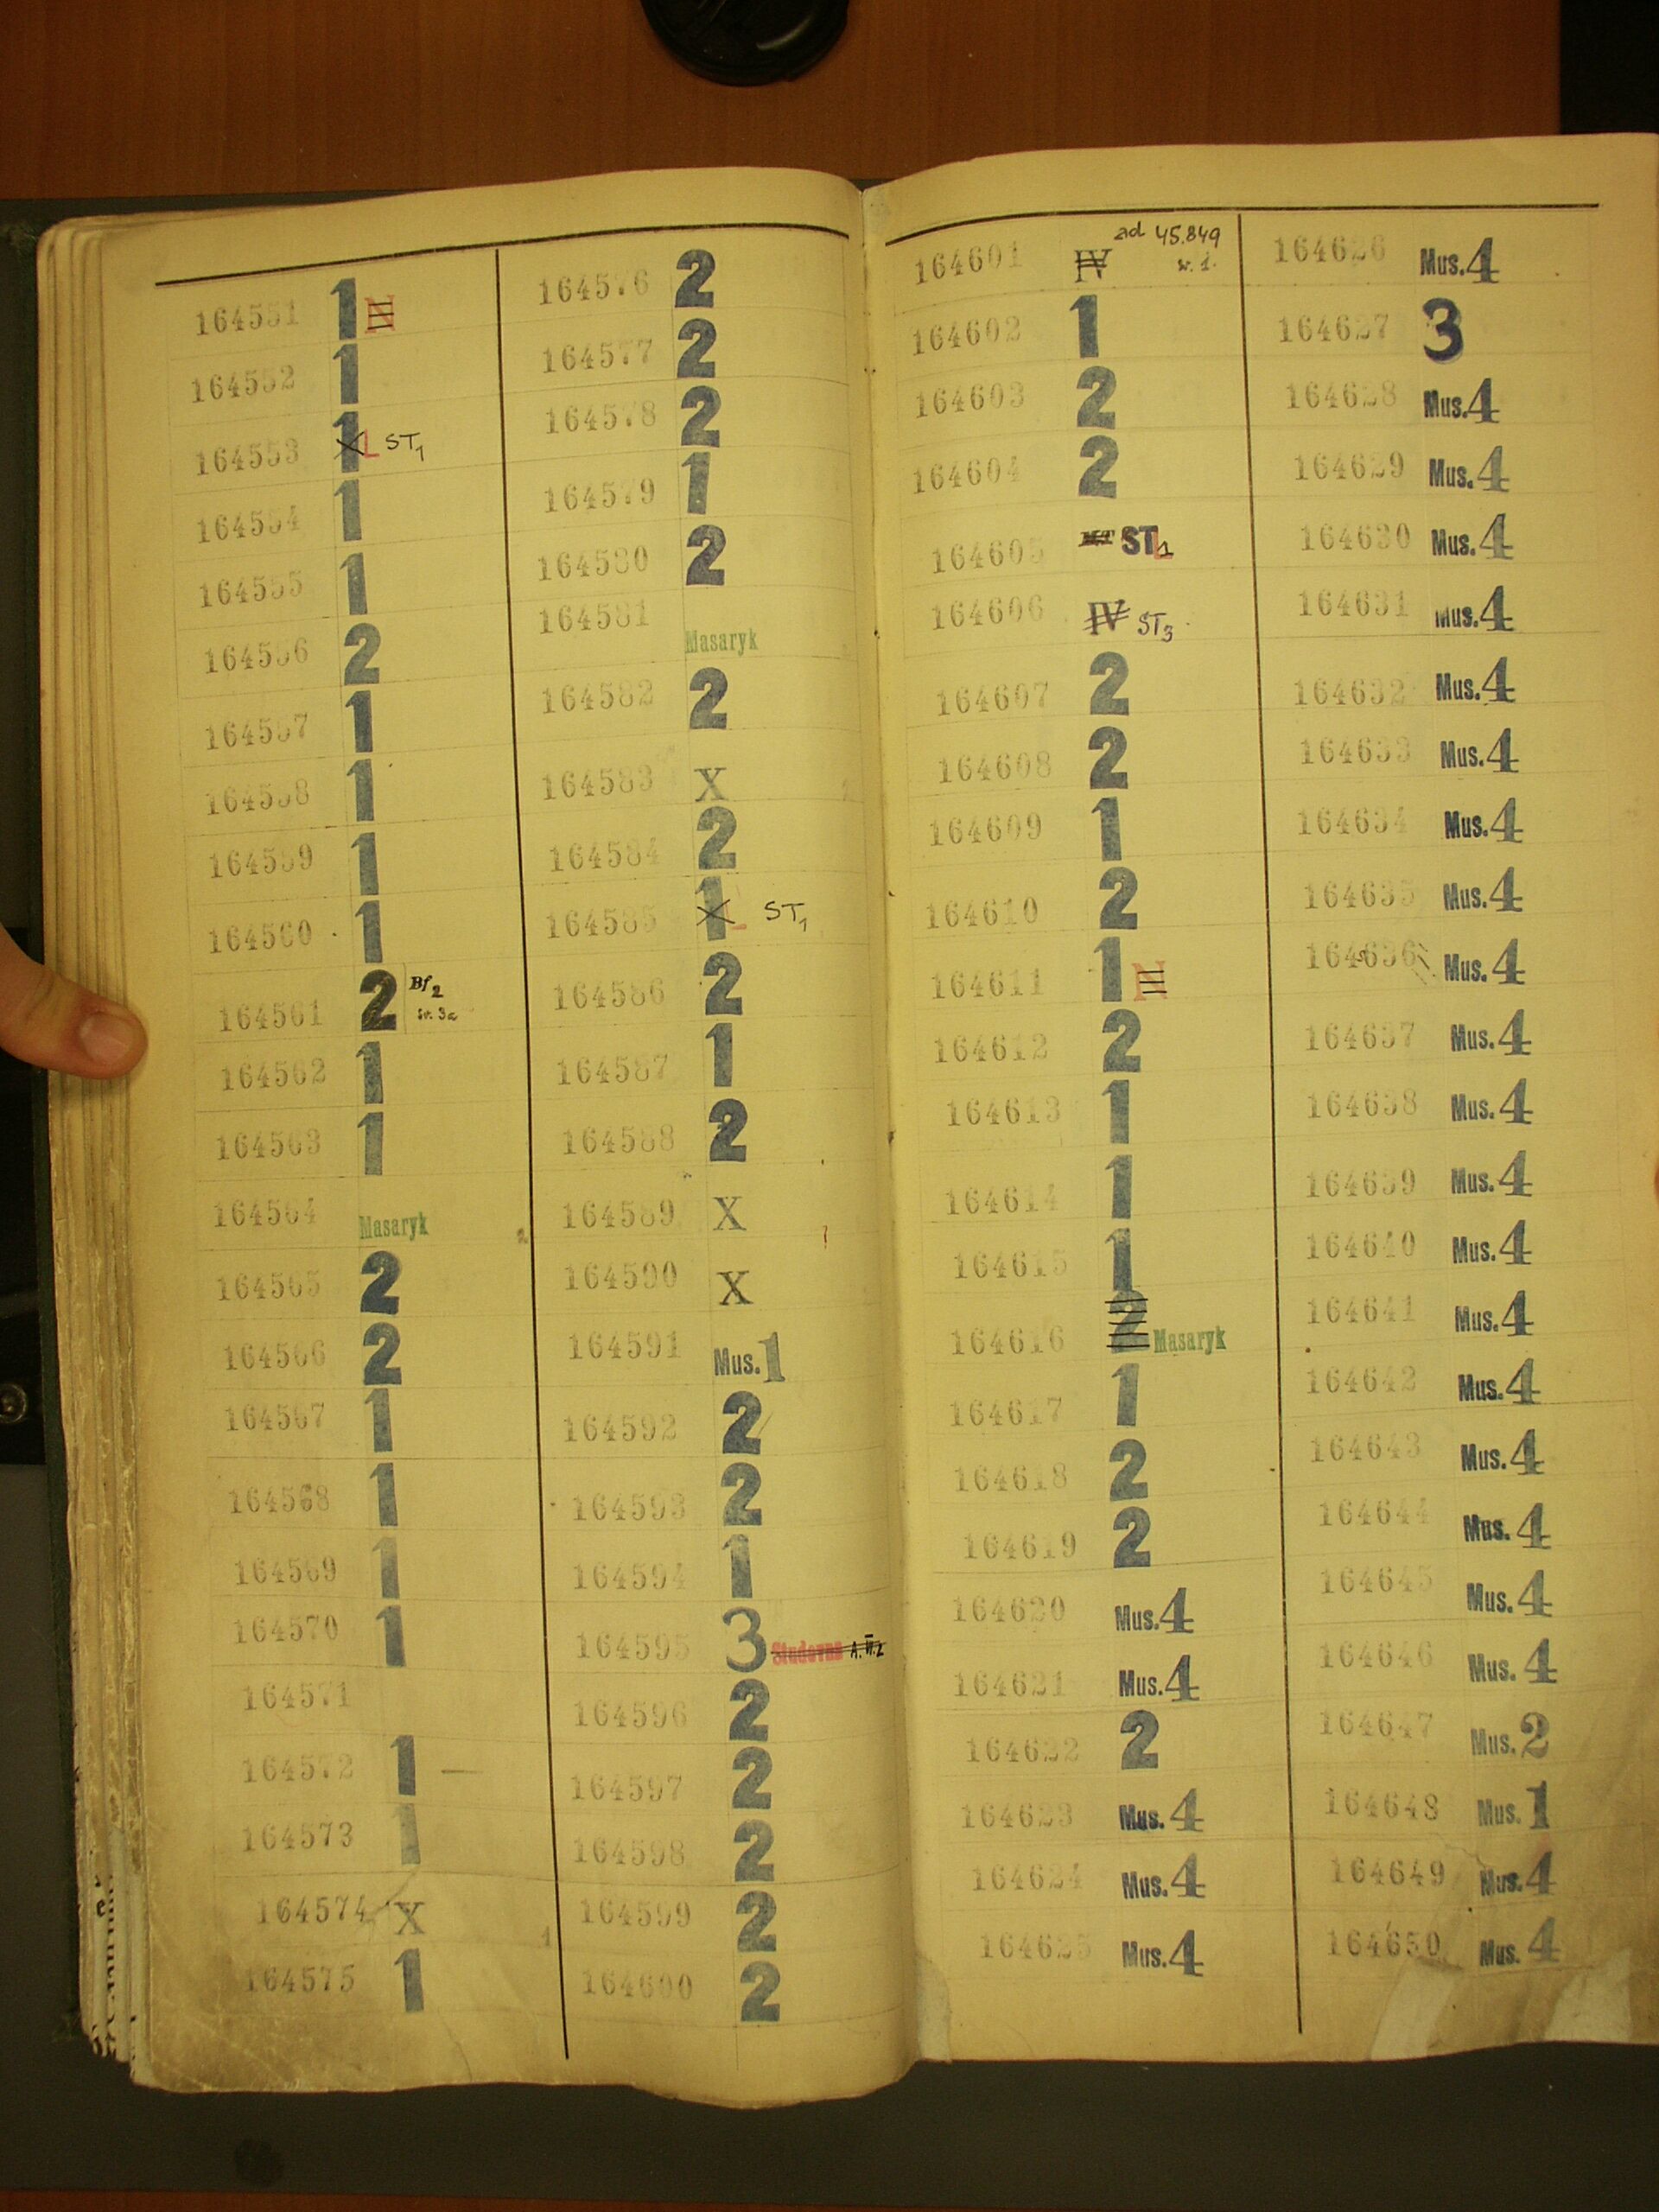 164551 1 N
164552 1
164553 1 L ST1
164554 1
164555 1
164556 2
164557 1
164558 1
164559 1
164560 1
164561 2 Bf2 sv. 3a
164562 1
164563 1
164564 Masaryk
164565 2
164566 2
164567 1
164568 1
164569 1
164570 1
164571
164572 1 —
164573 1
164574 X
164575 1
164576 2
164577 2
164578 2
164579 1
164580 2
164581 Masaryk
164582 2
164583 X
164584 2
164585 1 L ST1
164586 2
164587 1
164588 2
164589 X
164590 X
164591 Mus. 1
164592 2
164593 2
164594 1
164595 3 Studovna A.VI.2
164596 2
164597 2
164598 2
164599 2
164600 2
164601 IV ad 45.849
164602 1
164603 2
164604 2
164605 ST1
164606 IV ST3
164607 2
164608 2
164609 1
164610 2
164611 1 N
164612 2
164613 1
164614 1
164615 1
164616 2 Masaryk
164617 1
164618 2
164619 2
164620 Mus. 4
164621 Mus. 4
164622 2
164623 Mus. 4
164624 Mus. 4
164625 Mus. 4
164626 Mus. 4
164627 3
164628 Mus. 4
164629 Mus. 4
164630 Mus. 4
164631 Mus. 4
164632 Mus. 4
164633 Mus. 4
164634 Mus. 4
164635 Mus. 4
164636 Mus. 4
164637 Mus. 4
164638 Mus. 4
164639 Mus. 4
164640 Mus. 4
164641 Mus. 4
164642 Mus. 4
164643 Mus. 4
164644 Mus. 4
164645 Mus. 4
164646 Mus. 4
164647 Mus. 2
164648 Mus. 1
164649 Mus. 4
164650 Mus. 4